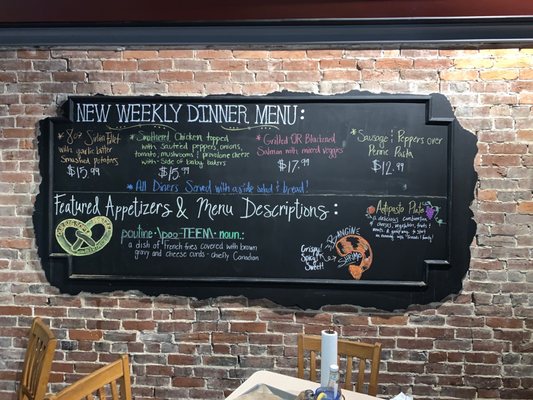 NEW WEEKLY DINNER MENU:
* 8oz Sirloin Filet
with garlic butter
Smashed potatoes
$15.99
* Smothered Chicken topped
with sauteed peppers, onions,
tomato, mushrooms & provolone cheese
with side of baby bakers
$15.99
* Grilled OR Blackened
Salmon with mixed veggies
$17.99
* Sausage & Peppers over
Penne Pasta
$12.99
* All Dinners Served with a side salad & bread!
Featured Appetizers & Menu Descriptions:
poutine \poo-TEEN\ noun:
a dish of french fries covered with brown
gravy and cheese curds - chiefly Canadian
Crispy,
Spicy
Sweet
Shrimp
Antipasto Plate
a delicious combination